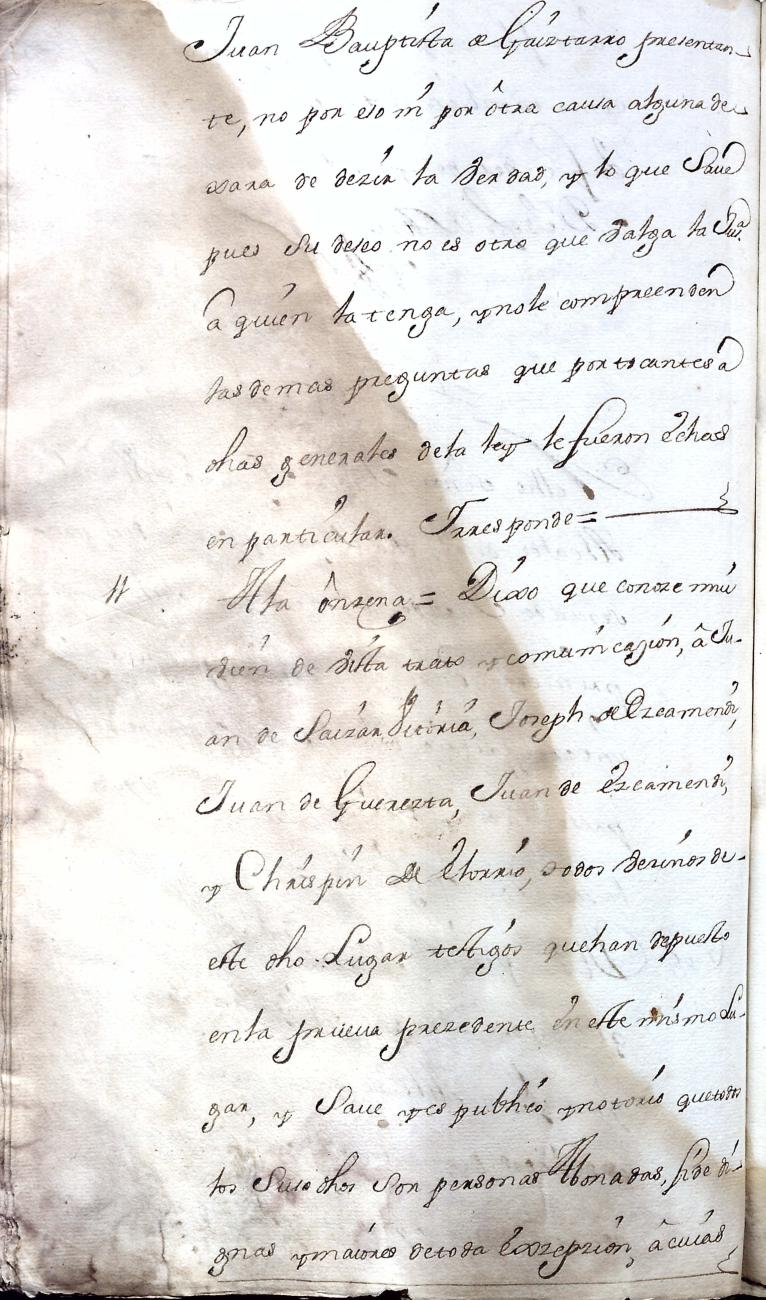 Juan Bauptista de Gaiztarro presentan-
te, no por eso ni por ôtra causa alguna de-
xara de dezir la Verdad, y lo que Save
pues su deseo no es otro que Valga la Jusª
â quien la tenga, y no le compreenden
las demas preguntas que por tocantes a
dhas generales de la ley le fueron êchas
en particular. Yrresponde =
11 A la ônzena = Dixo que conoze mui
bien de Vista trato y comunicazion, â Ju-
an de Saizar Vitoria, Joseph de Ezcamendi,
Juan de Guerezta, Juan de Ezcamendi,
y Chrispin de Elorrio, todos Vezinos de-
este dho Lugar testigos que han depuesto
en la prueva prezedente en este mismo Lu-
gar, y Save y es publico y notorio que todos
los suso dhos son personas Abonadas, fide di-
gnas y maiores de toda êxzepzion, â cuias